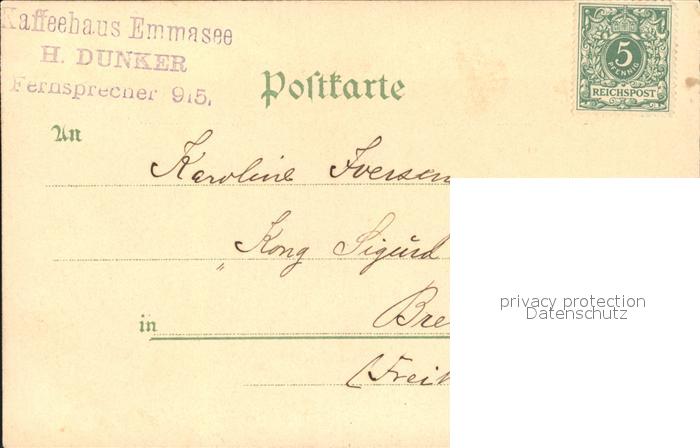 Kaffeehaus Emmasee
H. DUNKER
Fernsprecher 915.
5
PFENNIG
REICHSPOST
Postkarte
An
Karoline Iversen
"Kong Sigurd
in Bre
(Frei
privacy protection
Datenschutz